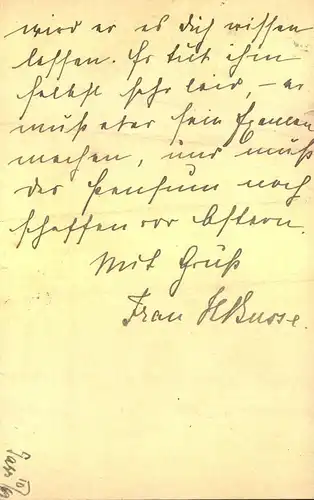 wird er es dich wissen
lassen. Es tut ihm
selbst sehr leid, – er
muß aber sein Examen
machen, und muß
das Pensum noch
schaffen vor Ostern.
Mit Gruß
Frau H Busse.